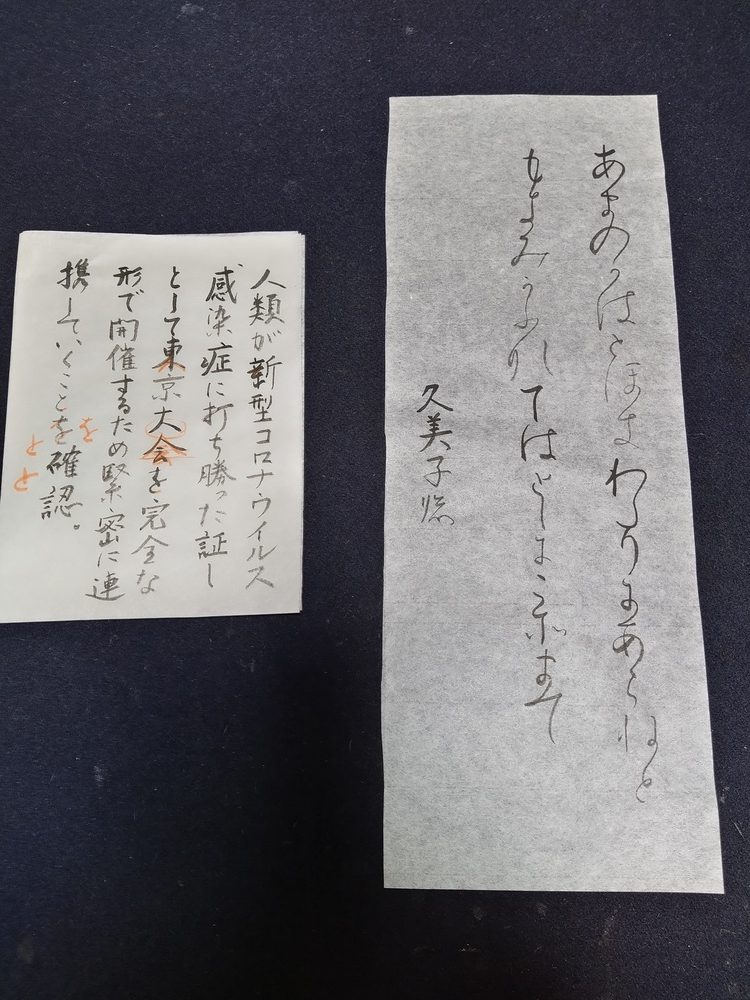 あまのかはとほきわたりにあらねと
もきみかふなてはとしにこそまて
久美子臨
人類が新型コロナウイルス
感染症に打ち勝った証し
として東京大会を完全な
形で開催するため緊密に連
携していくことを確認。
を
と
と